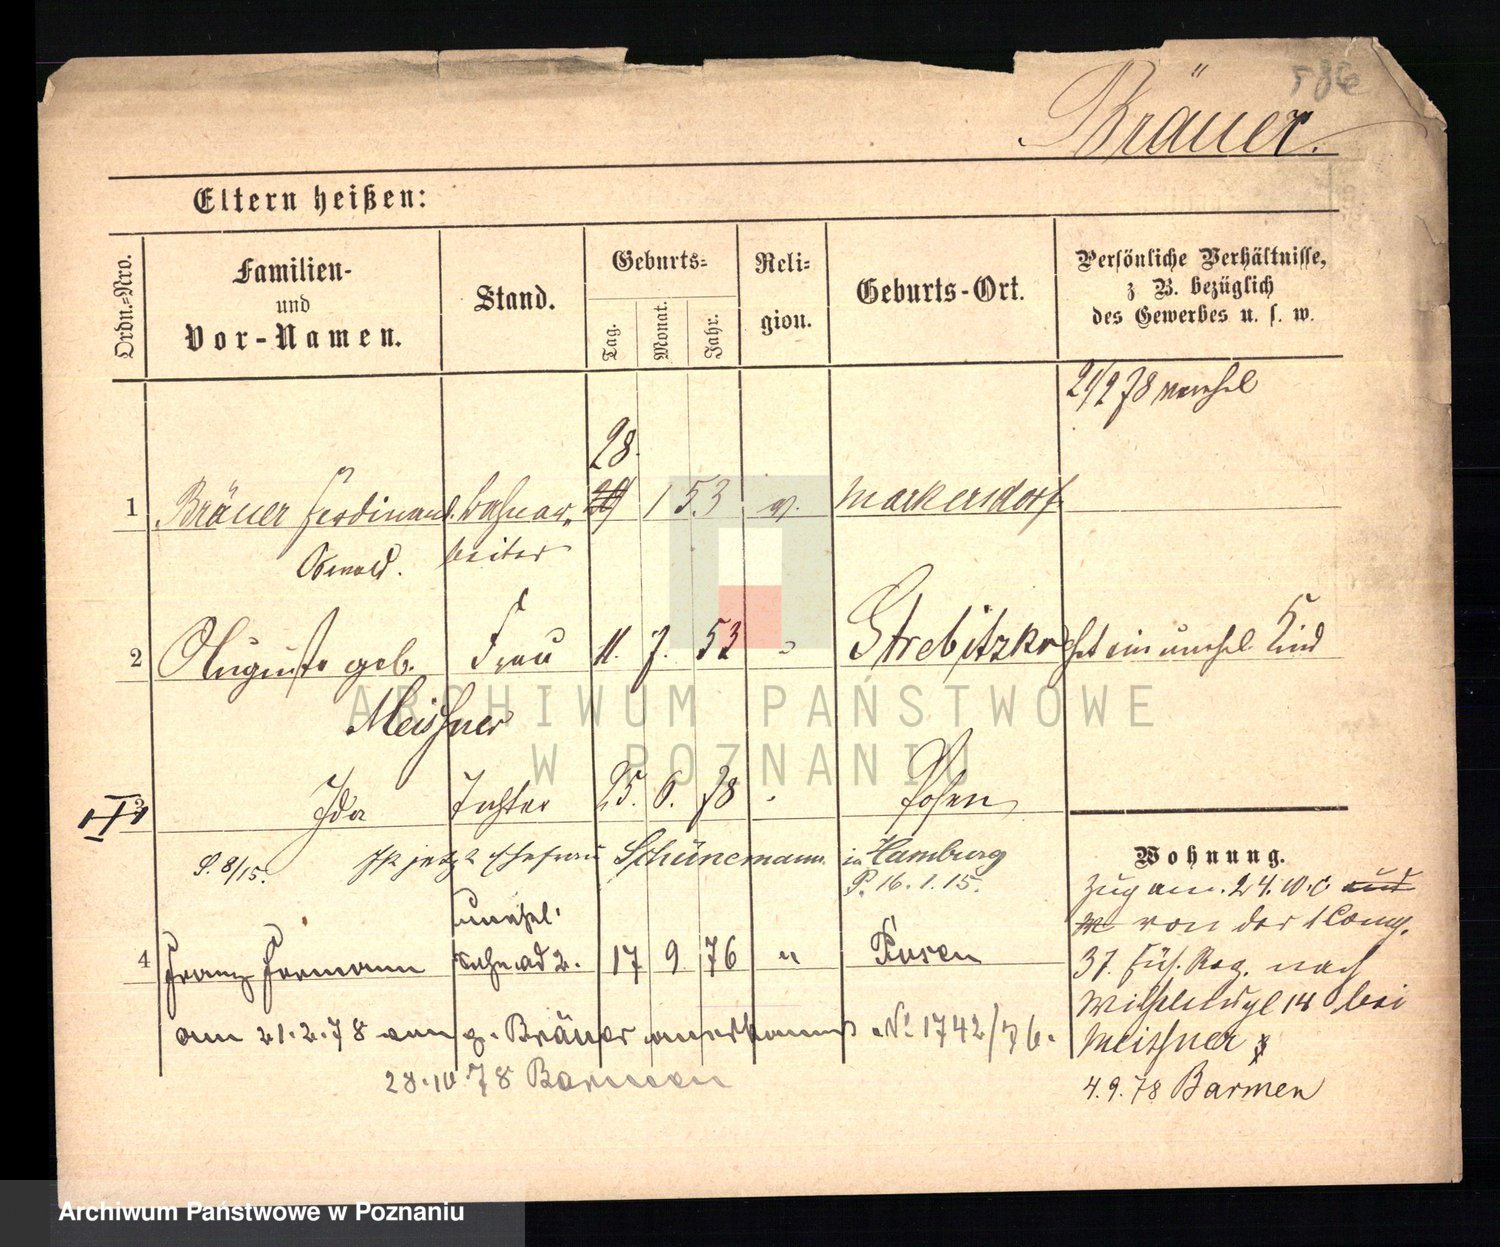 586
Bräuer.
Eltern heißen:
Ordn.-Nro.
Familien-
und
Vor-Namen.
Stand.
Geburts-
Tag. Monat. Jahr.
Reli-
gion.
Geburts-Ort.
Persönliche Verhältnisse,
z B. bezüglich
des Gewerbes u. s. w.
21/2 78 verehel
28.
1 Bräuer Ferdinand Bahnar- 1 53 Markersdorf
Oswald. beiter
2 Auguste geb. Frau 11. 7. 53 " Strebitzko hat ein unehel Kind
Meißner
3 Ida Tochter 25. 6. 78 Posen
P. 8/15. Ist jetzt Ehefrau Schünemann in Hamburg
P. 16.1.15.
unehel.
4 Franz Hermann Sohn ad 2. 17 9 76 " Posen
am 21.2.78 vom p. Bräuer anerkannt No 1742/76.
28.10.78 Barmen
Wohnung.
Zug am 24.10. c. und
von der 1 Comp.
37. Füs. Reg. nach
bei
Meißner
4.9.78 Barmen
ARCHIWUM PAŃSTWOWE
W POZNANIU
Archiwum Państwowe w Poznaniu